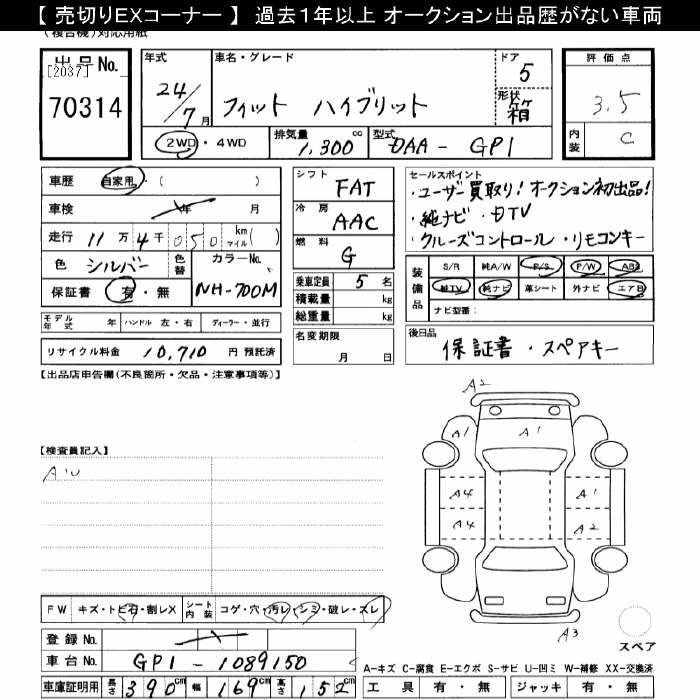 【 売切りEXコーナー 】 過去1年以上 オークション出品歴がない車両
(複合機)対応用紙
出品No.
[2037]
70314
年式
24/7月
車名・グレード
フィット ハイブリット
ドア
5
形状
箱
評価点
3.5
内装
C
2WD・4WD
排気量
1,300cc
型式
DAA - GP1
車歴 自家用・( )
車検 年 月
走行 11万4千050 km マイル( )
色 シルバー 色替 カラーNo. NH-700M
保証書 有・無
モデル年式 年 ハンドル 左・右 ディーラー・並行
リサイクル料金 10,710 円 預託済
シフト
FAT
冷房
AAC
燃料
G
乗車定員 5名
積載量 kg
総重量 kg
名変期限
月 日
セールスポイント
・ユーザー買取り! オークション初出品!
・純ナビ ・dTV
・クルーズコントロール ・リモコンキー
装備品
S/R 純A/W P/S P/W ABS
純TV 純ナビ 革シート 外ナビ エアB
ナビ型番:
後日品
保証書 ・ スペアキー
【出品店申告欄(不良箇所・欠品・注意事項等)】
【検査員記入】
AU
A2
A1
A1
A4
A1
A4
A2
A3
スペア
FW キズ・トビ石・割レX シート内装 コゲ・穴・汚レ・シミ・破レ・スレ
登録No.
車台No. GP1 - 1089150
車庫証明用 長さ 390cm 幅 169cm 高さ 152cm
A-キズ C-腐食 E-エクボ S-サビ U-凹ミ W-補修 XX-交換済
工具 有・無 ジャッキ 有・無